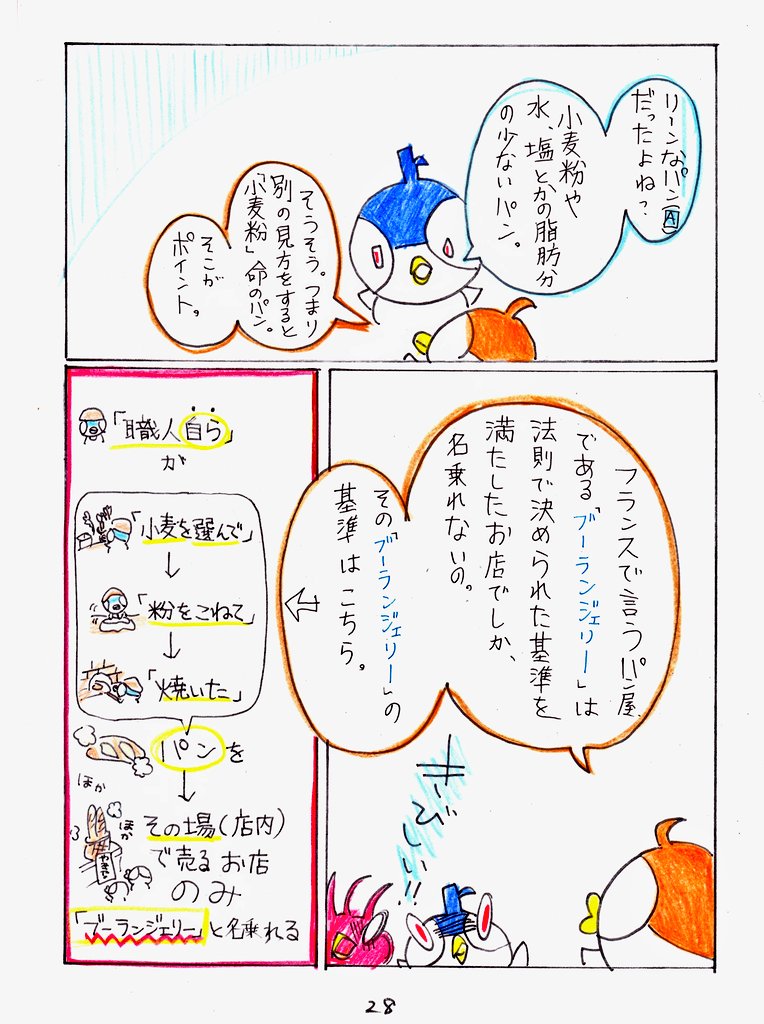 リーンなパン(A)
だったよね？
小麦粉や
水、塩とかの脂肪分
の少ないパン。
そうそう。つまり
別の見方をすると
「小麦粉」命のパン。
そこが
ポイント。
フランスで言うパン屋
である「ブーランジェリー」は
法則で決められた基準を
満たしたお店でしか、
名乗れないの。
その「ブーランジェリー」の
基準はこちら。
キビしい!!
「職人自ら」
が
「小麦を選んで」
↓
「粉をこねて」
↓
「焼いた」
パンを
↓
ほか
ほか
その場(店内)
で売るお店
のみ
「ブーランジェリー」と名乗れる
28